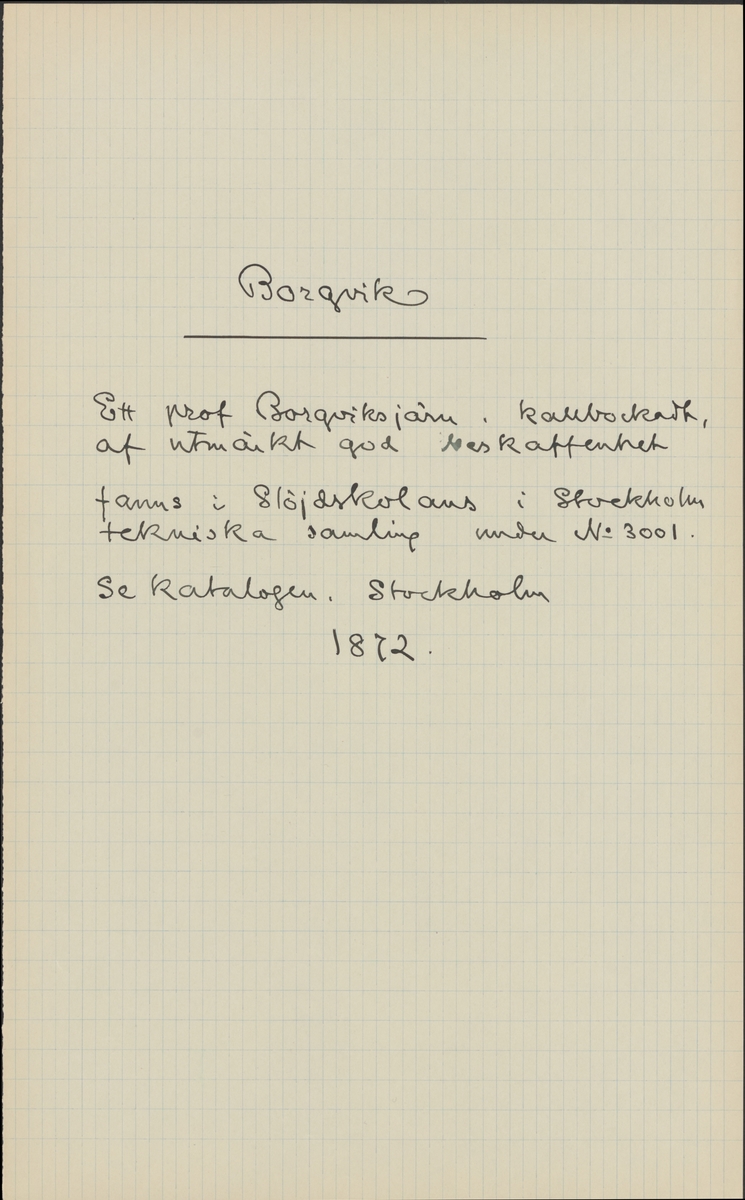 Borgvik
Ett prof Borgviksjärn. kallbockadt,
af utmärkt god beskaffenhet
fanns i Slöjdskolans i Stockholm
tekniska samling under No 3001.
Se Katalogen. Stockholm
1872.